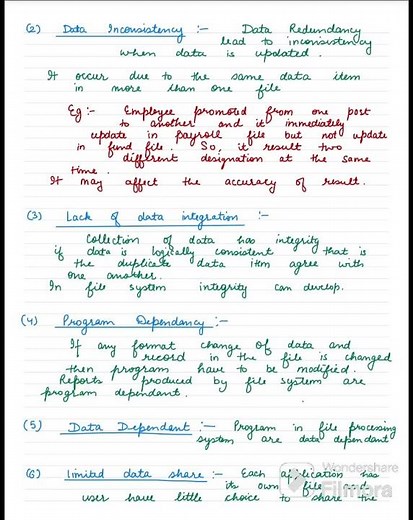 (2) Data Inconsistency :- Data Redundancy
lead to inconsistency
when data is updated.
It occur due to the same data item
in more than one file
Eg:- Employee promoted from one post
to another and it immediately
update in payroll file but not update
in fund file. So, it result two
different designation at the same
time.
It may affect the accuracy of result.
(3) Lack of data integration :-
Collection of data has integrity
if data is logically consistent that is
the duplicate data itm agree with
one another.
In file system integrity can develop.
(4) Program Dependancy :-
If any format change of data and
record in the file is changed
then program have to be modified.
Reports produced by file system are
program dependant.
(5) Data Dependent :- Program in file processing
system are data dependant
(6) limited data share :- Each application has
its own file and
user have little choice to share the
Wondershare
Filmora